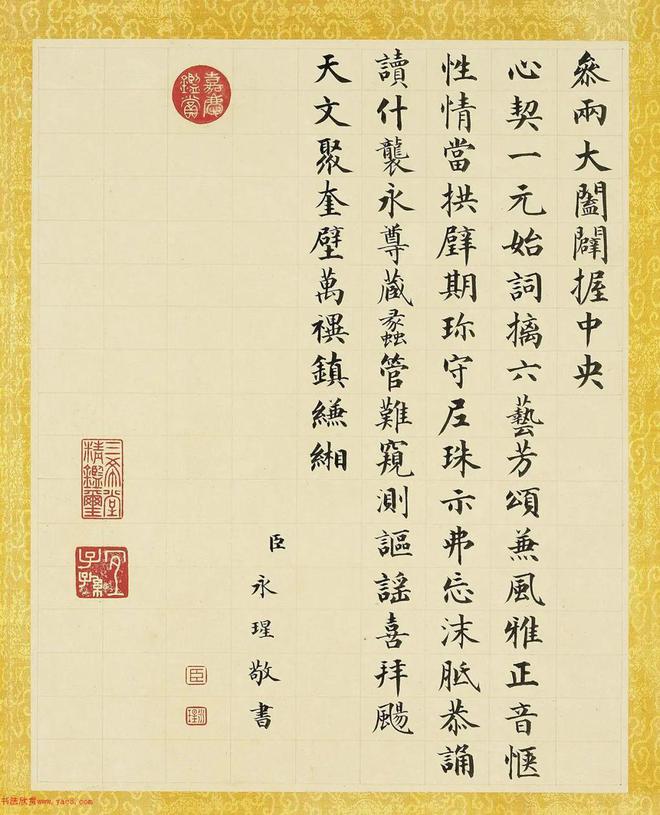 叅兩大闔闢握中央
心契一元始詞摛六藝芳頌兼風雅正音愜
性情當拱璧期珎守尼珠示弗忘沫胝恭誦
讀什襲永尊藏蠡管難窺測謳謠喜拜颺
天文聚奎壁萬禩鎮縑緗
臣永瑆敬書
嘉慶鑑賞
三希堂精鑑璽
宜子孫
臣
永瑆
书法欣赏www.yac8.com